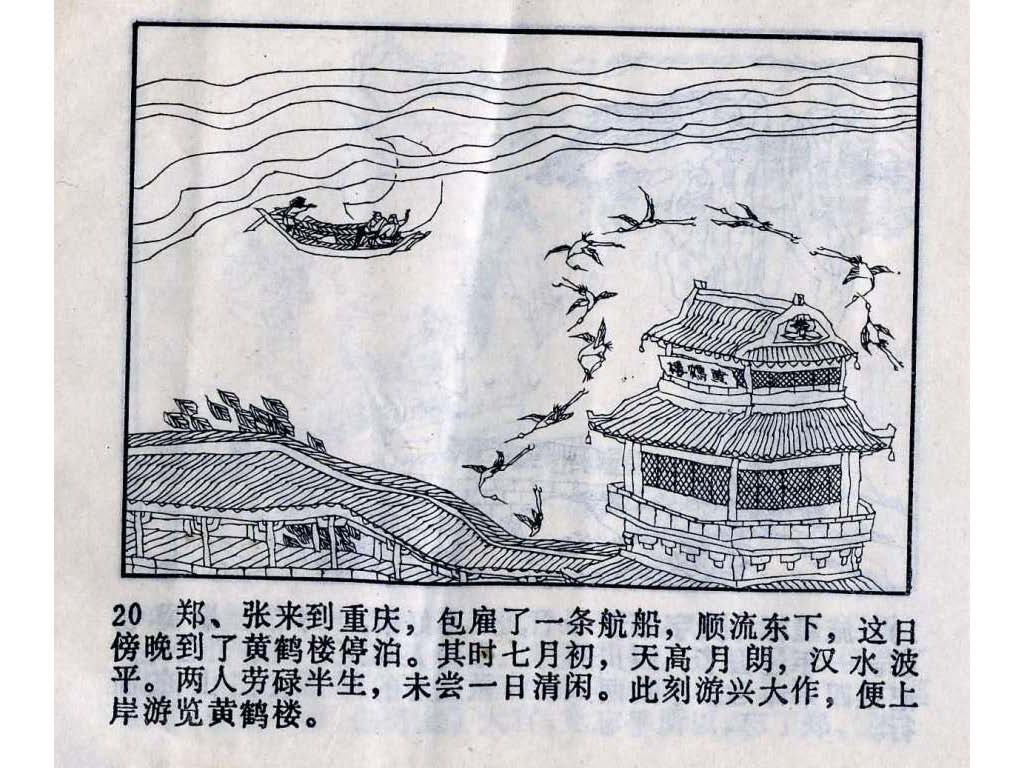 黄鹤楼
20 郑、张来到重庆，包雇了一条航船，顺流东下，这日
傍晚到了黄鹤楼停泊。其时七月初，天高月朗，汉水波
平。两人劳碌半生，未尝一日清闲。此刻游兴大作，便上
岸游览黄鹤楼。